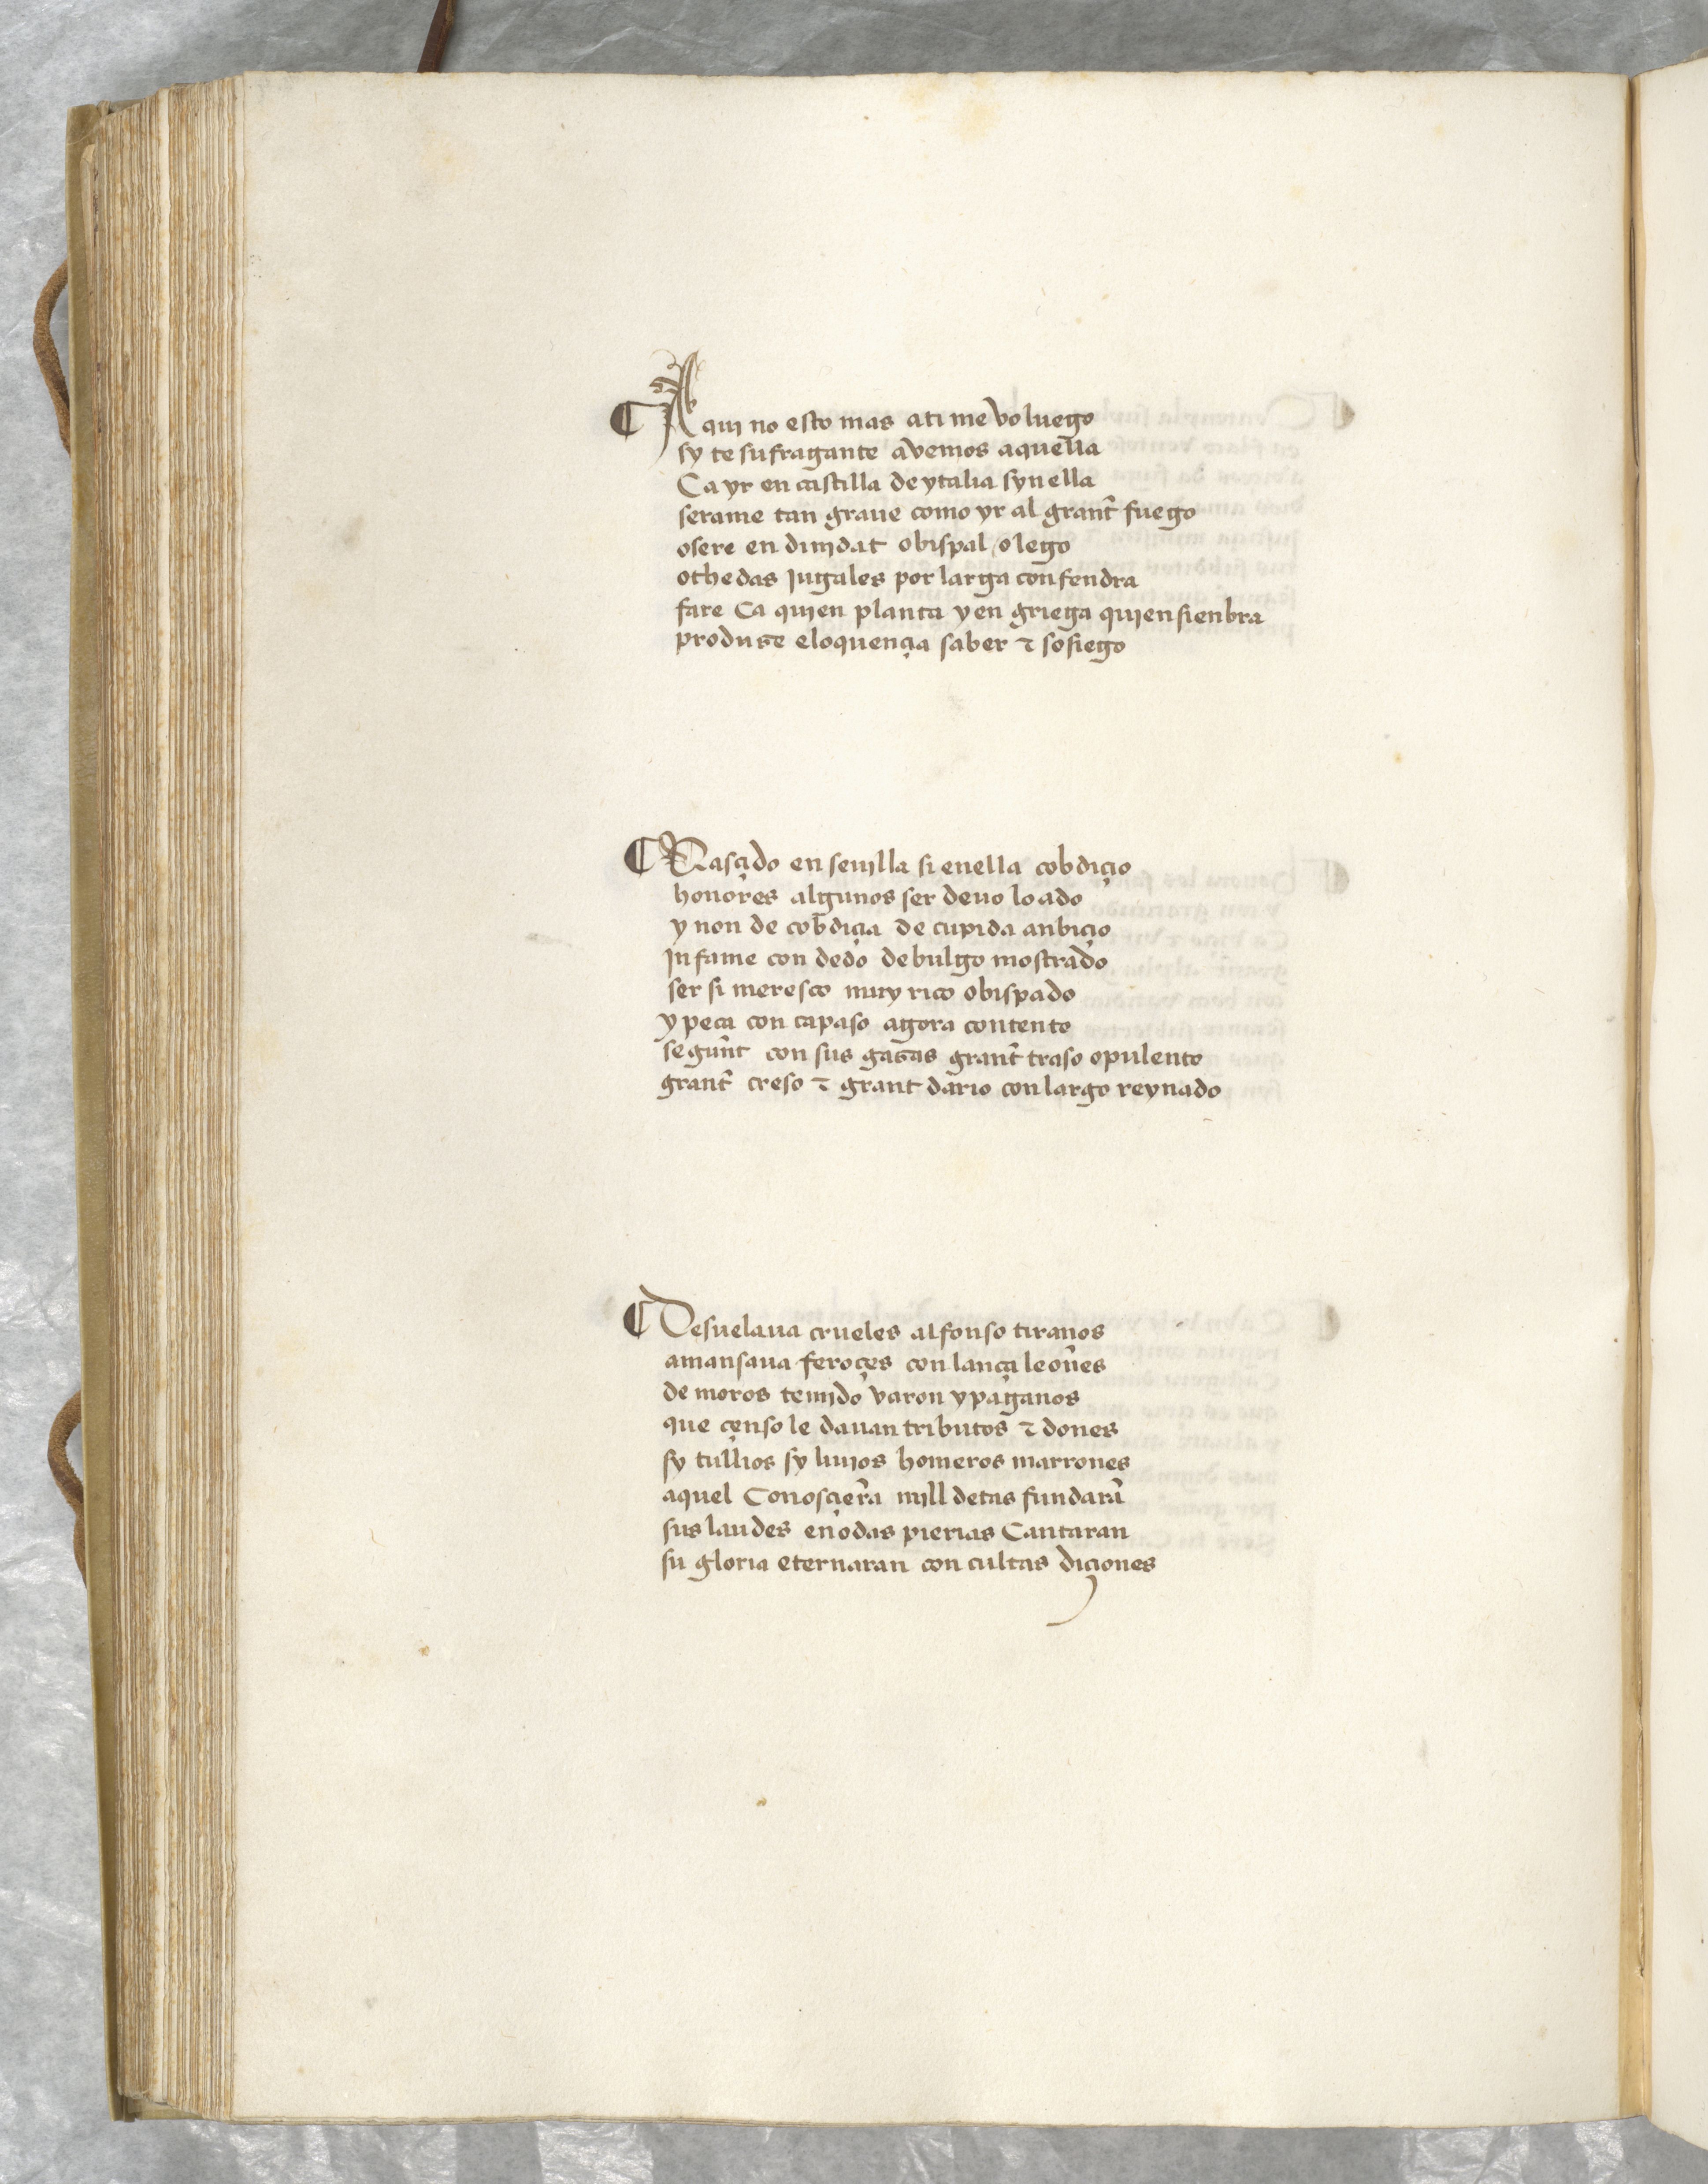 ¶ Aqui no esto mas ati me voluego
sy te sufragante avemos aquella
Ca yr en castilla de ytalia syn ella
serame tan graue como yr al grant̃ fuego
osere en diujdat obispal / o lego
othe das Jugales por larga confendra
fare Ca qujen planta y en griega qujen sienbra
produze eloquençia saber ⁊ sosiego
¶ Nasçido en seuilla si enella cobdiçio
honores algunos ser deuo loado
y non de cobdiçia de cupida anbiçio
Jnfame con dedo debulgo mostrado
ser si meresco muy rico obispado
y peca con capaso agora contento
segunt con sus gazas grant̃ traso opulento
grant̃ creso ⁊ grant dario con largo reynado
¶ Desuelaua crueles alfonso tiranos
amansaua feroçes con lança leones
de moros temido varon y paganos
que çenso le dauan tributos ⁊ dones
sy tullios sy liuios homeros marrones
aquel Conosçierã mjll detas fundarã
sus laudes en odas pierias Cantaran
su gloria eternaran con cultas diçiones